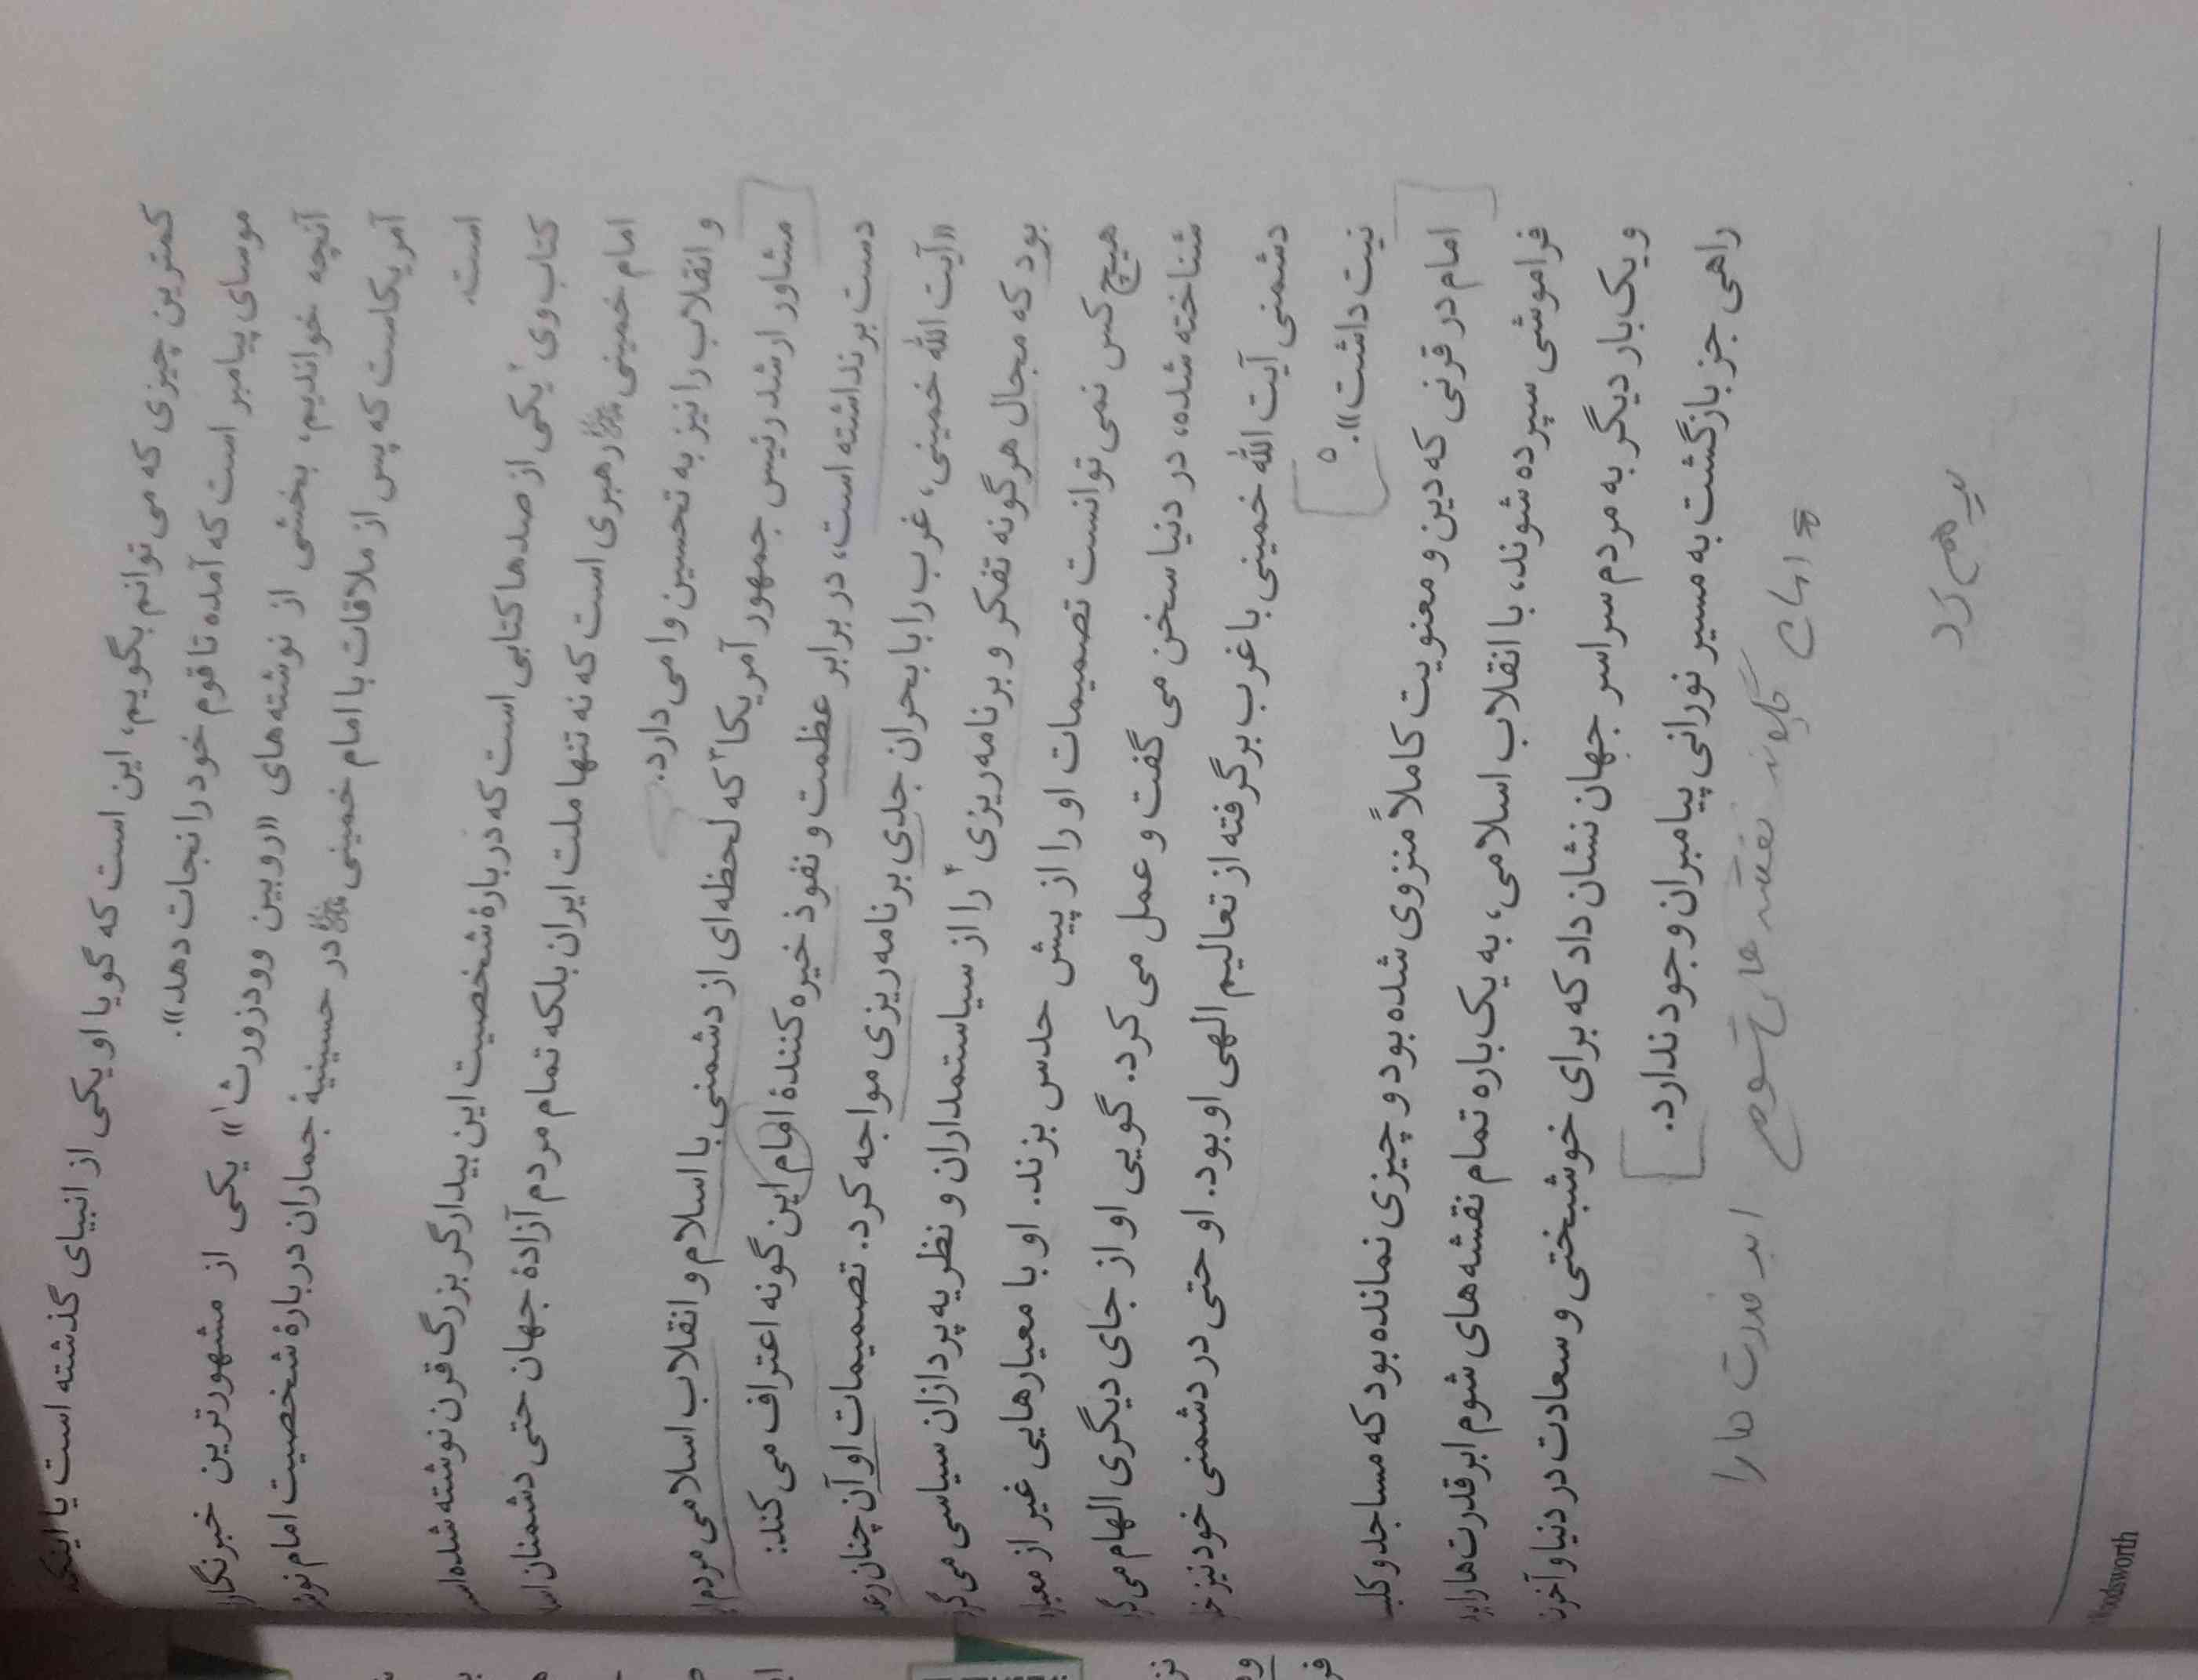 کمترین چیزی که می‌توانم بگویم، این است که گویا او یکی از انبیای گذشته است یا اینکه
موسای پیامبر است که آمده تا قوم خود را نجات دهد».
آنچه خواندیم، بخشی از نوشته‌های «روبین وودزورث۱» یکی از مشهورترین خبرنگاران
آمریکاست که پس از ملاقات با امام خمینی در حسینیهٔ جماران دربارهٔ شخصیت امام
است.
کتاب وی۲ یکی از صدها کتابی است که دربارهٔ شخصیت این بیدارگر بزرگ قرن نوشته شده
امام خمینی رهبری است که نه تنها ملت ایران بلکه تمام مردم آزادهٔ جهان حتی دشمنان
و انقلاب را نیز به تحسین وا می‌دارد.
مشاور ارشد رئیس جمهور آمریکا۳ که لحظه‌ای از دشمنی با اسلام و انقلاب اسلامی مردم
دست برنداشته است، در برابر عظمت و نفوذ خیره کنندهٔ امام این گونه اعتراف می‌کند:
«آیت الله خمینی، غرب را با بحران جدی برنامه‌ریزی مواجه کرد. تصمیمات او آن چنان
بود که مجال هرگونه تفکر و برنامه‌ریزی۴ را از سیاستمداران و نظریه پردازان سیاسی
هیچ کس نمی‌توانست تصمیمات او را از پیش حدس بزند. او با معیارهایی غیر از
شناخته شده، در دنیا سخن می‌گفت و عمل می‌کرد. گویی او از جای دیگری الهام
دشمنی آیت الله خمینی با غرب برگرفته از تعالیم الهی او بود. او حتی در دشمنی خود نیز
نیت داشت».۵
امام در قرنی که دین و معنویت کاملاً منزوی شده بود و چیزی نمانده بود که مساجد و
فراموشی سپرده شوند، با انقلاب اسلامی، به یک باره تمام نقشه‌های شوم ابرقدرت‌ها را
و یک بار دیگر به مردم سراسر جهان نشان داد که برای خوشبختی و سعادت در دنیا و
راهی جز بازگشت به مسیر نورانی پیامبران وجود ندارد.
امام چگونه نقشه های شوم ابر قدرت ها را
بر هم زد
Woodsworth